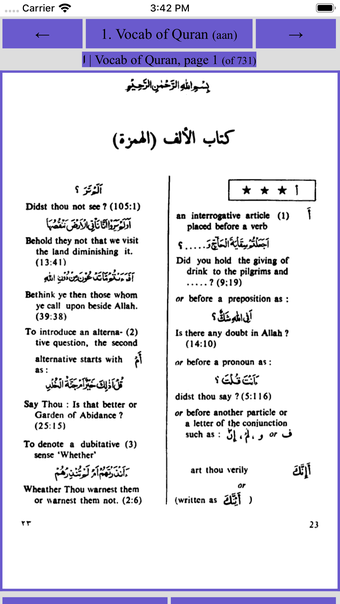 .... Carrier
3:42 PM
←
1. Vocab of Quran (aan)
→
| Vocab of Quran, page 1 (of 731)
بِسْمِ اللهِ الرَّحْمٰنِ الرَّحِيْمِ
كتاب الألف (الهمزة)
أ ★ ★ ★
an interrogative article (1) أَ
placed before a verb
Did you hold the giving of
drink to the pilgrims and
.....? (9;19)
or before a preposition as :
أَفِي اللهِ شَكٌّ ؟
Is there any doubt in Allah ?
(14:10)
or before a pronoun as :
ءَاَنْتَ قُلْتَ ؟
didst thou say ? (5:116)
or before another particle or
a letter of the conjunction
such as : إِنَّ ، لَمْ ، و or ف
art thou verily أَإِنَّكَ
or
(written as أَئِنَّكَ )
أَلَمْ تَرَ ؟
Didst thou not see ? (105:1)
Behold they not that we visit
the land diminishing it.
(13:41)
Bethink ye then those whom
ye call upon beside Allah.
(39:38)
To introduce an alterna- (2)
tive question, the second
alternative starts with أَمْ
as :
قُلْ أَذٰلِكَ خَيْرٌ أَمْ جَنَّةُ الْخُلْدِ
Say Thou : Is that better or
Garden of Abidance ?
(25:15)
To denote a dubitative (3)
sense 'Whether'
ءَاَنْذَرْتَهُمْ اَمْ لَمْ تُنْذِرْهُمْ
Wheather Thou warnest them
or warnest them not. (2:6)
٢٣
23